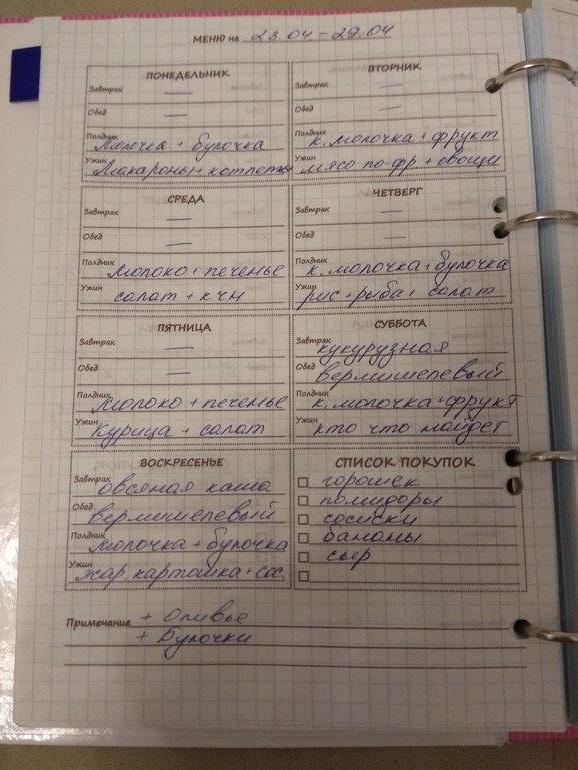 МЕНЮ на 23.04. - 29.04
ПОНЕДЕЛЬНИК
Завтрак —
Обед —
Полдник Молочка + булочка
Ужин Макароны + котлеты
ВТОРНИК
Завтрак —
Обед —
Полдник к. молочка + фрукт
Ужин мясо по-фр + овощи
СРЕДА
Завтрак —
Обед —
Полдник Молоко + печенье
Ужин салат + кчн
ЧЕТВЕРГ
Завтрак —
Обед —
Полдник к. молочка + булочка
Ужин рис + рыба + салат
ПЯТНИЦА
Завтрак —
Обед —
Полдник Молоко + печенье
Ужин Курица + салат
СУББОТА
Завтрак кукурузная
Обед вермишелевый
Полдник к. молочка + фрукт
Ужин кто что найдет
ВОСКРЕСЕНЬЕ
Завтрак овсяная каша
Обед вермишелевый
Полдник молочка + булочка
Ужин жар. картошка + сос.
СПИСОК ПОКУПОК
горошек
помидоры
сосиски
бананы
сыр
Примечание + Оливье
+ Булочки